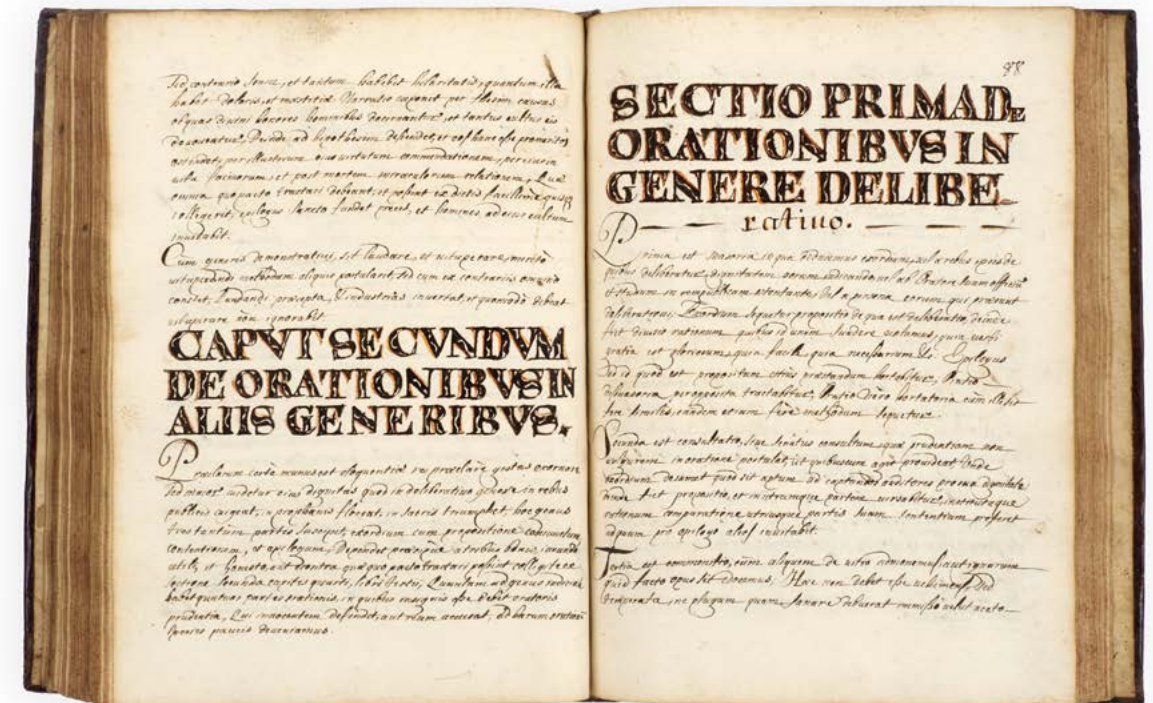 Sed contrario sensu, et tantum habebit hilaritatis, quantum illa
habet doloris, et mæstitiæ Narratio exponit per thesim causas
ob quas divini honores hominibus decernantur, et tantus cultus eis
deinde ad hypothesim et
ostendet, per illustrium eius virtutum commendationem, per eius in
vita facinorum, et post mortem miraculorum relationem, Quæ
omnia quo pacto tractari debeant, et possint ex dictis facillime quisq
collegerit, epilogus sancto fundet preces, et homines ad eius cultum
invitabit.
Cum generis demonstrativi, sit laudare, et vituperare, merito
vituperandi methodum aliquis postularit, sed cum ex contrariis omnino
constet, laudandi præcepta, industrius invertat, et quomodo debeat
vituperare non ignorabit
CAPVT SECVNDVM
DE ORATIONIBVS IN
ALIIS GENERIBVS.
Præclarum certe munus est eloquentiæ res præclare gestas exornare
sed maior videtur eius dignitas quod in deliberativo genere in rebus
publicis vigeat, in prophanis floreat, in sacris triumphet, hoc genus
tres tantum partes suscipit, exordium cum propositione
contentionem, et epilogum, Dependet præcipue a tribus honesto
utili, et quæ quo pacto tractari possint collige te ex
sectione secunda capitis quarti, libri tertii, Quantum ad genus
habet quatuor partes orationis, in quibus insignis esse debet oratoris
prudentia, Qui innocentem defendet, aut reum accusat, Ad harum
species paucis deveniamus.
88
SECTIO PRIMA De
ORATIONIBVS IN
GENERE DELIBE
rativo.
Prima est suasoria in qua diducimus exordium, vel a rebus ipsis de
quibus deliberatur, dignitatem earum indicando, vel ab Oratore suum officium
et studium in rempublicam ostentante, vel a persona eorum qui præsunt
deliberationi, Exordium sequetur propositio de qua est deliberatio, deinde
fiet divisio rationum quibus id unum suadere volumus, quia verbi
gratia est gloriosum, quia facile quia necessarium &c. Epilogus
ad id quod est propositum citius præstandum hortabitur, Ratio
dissuasoria per opposita tractabitur, Oratio vero hortatoria cum illi sit
fere similis, eandem etiam fere methodum sequetur.
Secunda est consultatio, sive senatus consultum, quæ prudentiam non
vulgarem in oratore postulat, ut quibuscum agit provideat Unde
exordium desumat quod sit aptum ad captandos auditores pro eius dignitate
deinde fiet propositio, et in utramque partem versabitur,
rationum comparatione utriusque partis suam sententiam proferet
ad quam pro epilogo alios invitabit.
Tertia est commonitio, cum aliquem de vitio admonemus, aut ignarum
quid facto opus sit docemus, Hæc non debet esse vehemens, sed
temperata, ne plagam quam sanare debuerat immisso velut aceto